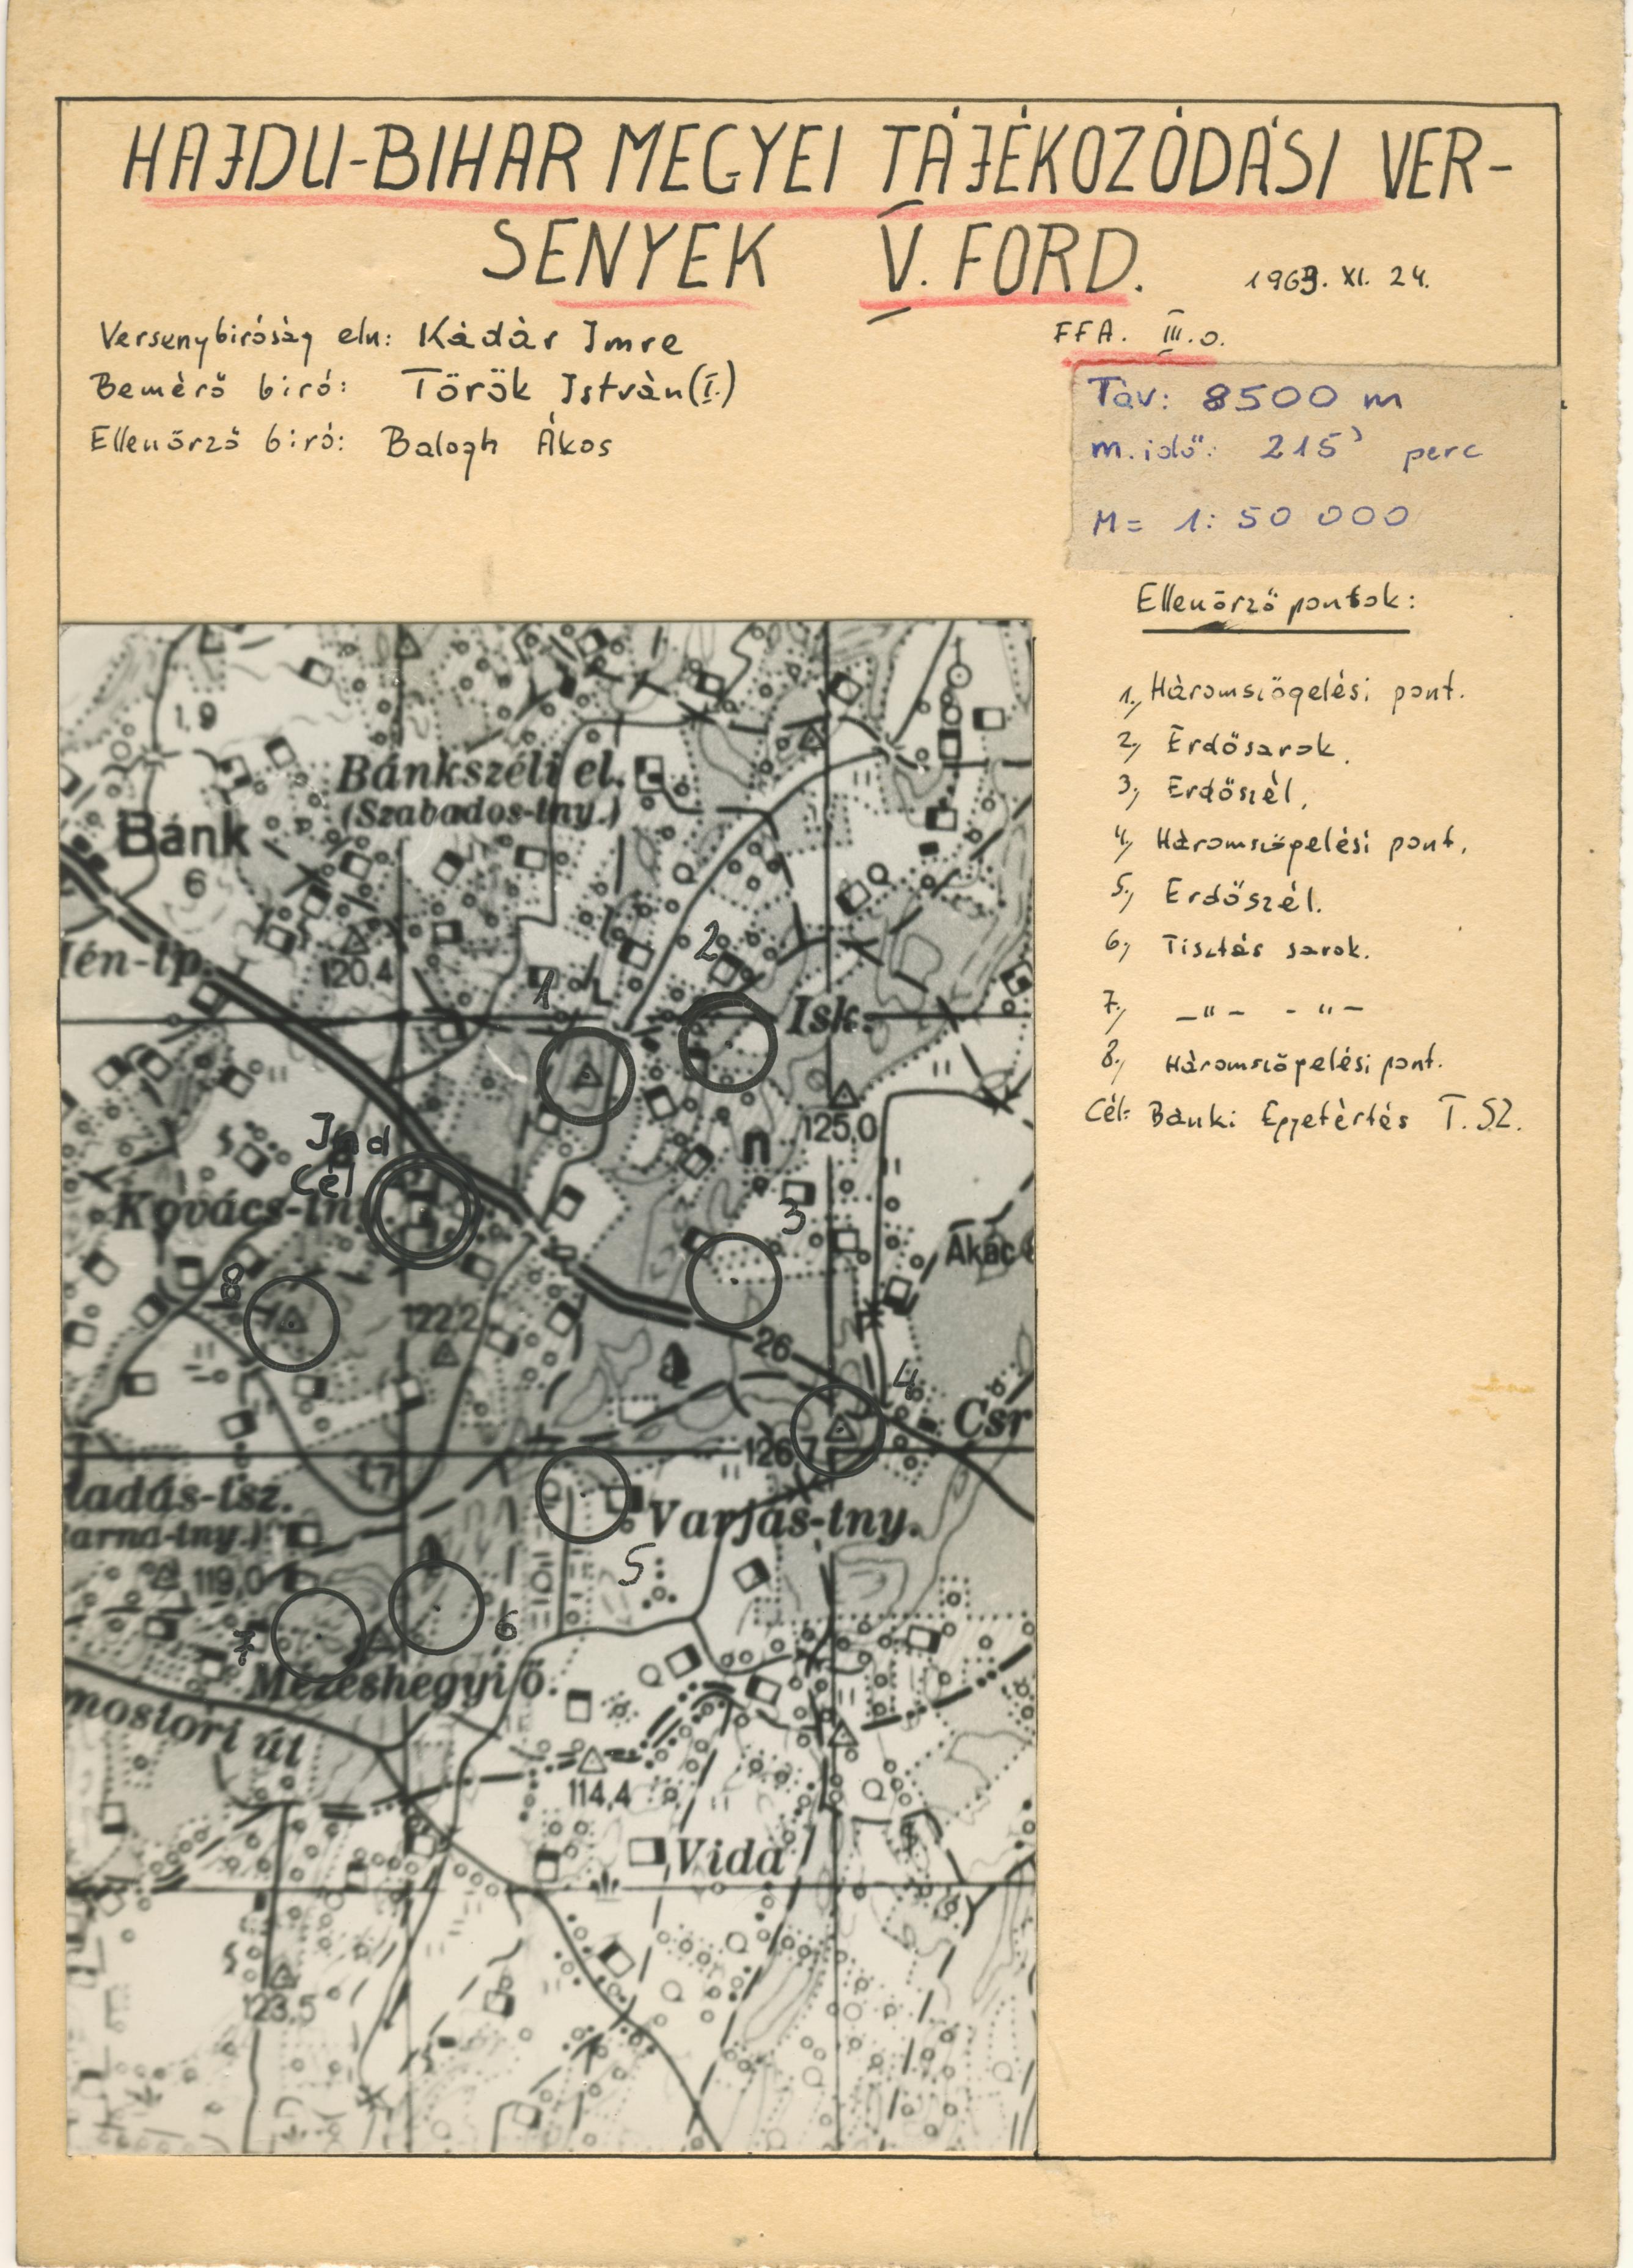 HAJDU-BIHAR MEGYEI TÁJÉKOZÓDÁSI VER-
SENYEK V. FORD.
1963. XI. 24.
Versenybiróság eln: Kádár Imre
Bemérő biró: Török István (I.)
Ellenőrző biró: Balogh Ákos
FFA. III. o.
Táv: 8500 m
m. idő: 215' perc
M = 1: 50 000
Ellenőrző pontok:
1., Háromszögelési pont.
2, Erdősarok.
3, Erdőszél.
4, Háromszögelési pont.
5, Erdőszél.
6, Tisztás sarok.
7, -"- -"-
8., Háromszögelési pont.
Cél: Bánki Egyetértés T. SZ.
1,9
Bánkszéli el.
(Szabados-tny.)
Bánk
6
120,4
2
1
Isk.
125,0
n
Ind
Cél
Kovács-tny
3
Akác
8
122,2
26
4
Csr
126,7
1,7
ladás-tsz.
arna-tny.)
Varjas-tny.
5
119,0
6
7
Mézeshegyi ő.
mostori út
114,4
Vida
123,5